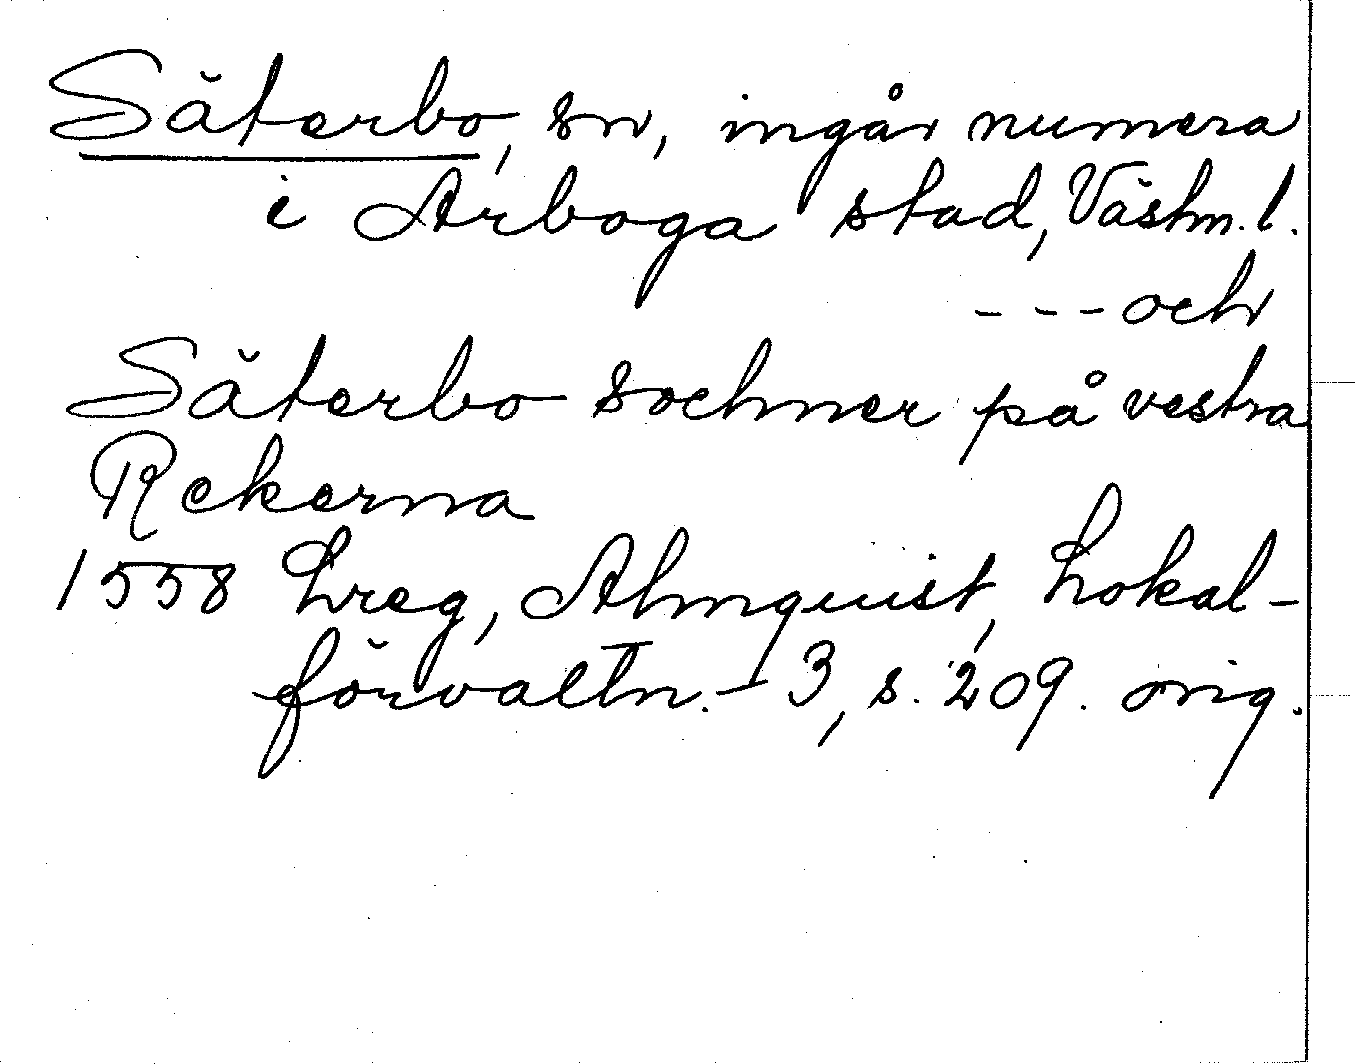 Säterbo, sn, ingår numera
i Arboga stad, Västm. l.
- - - och
Säterbo sochner på vestra
Rekerna
1558 Lreg, Almquist, Lokal-
förvaltn. - 3, s. 209. orig.